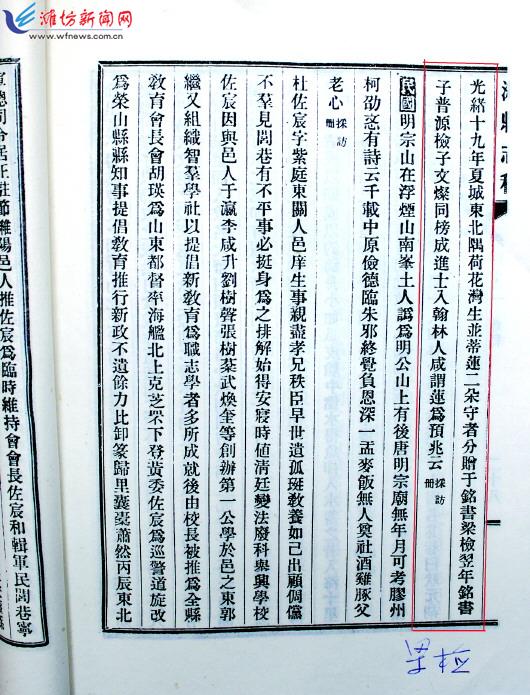 濰坊新闻网
www.wfnews.com.cn
濰縣志稿
光緒十九年夏城東北隅荷花灣生並蒂蓮二朵守者分贈于銘書梁檢翌年銘書
子普源檢子文燦同榜成進士入翰林人咸謂蓮爲預兆云採訪冊
民國明宗山在浮煙山南峯土人譌爲明公山上有後唐明宗廟無年月可考膠州
柯劭忞有詩云千載中原儉德臨朱邪終覺負恩深一盂麥飯無人奠社酒雞豚父
老心採訪冊
杜佐宸字紫庭東關人邑庠生事親盡孝兄秩臣早世遺孤斑教養如己出顧倜儻
不羣見閭巷有不平事必挺身爲之排解始得安寢時値清廷變法廢科與興學校
佐宸因與邑人于瀛李咸升劉樹聲張樹棻武煥奎等創辦第一公學於邑之東郭
繼又組織智羣學社以提倡新教育爲職志學者多所成就後由校長被推爲全縣
教育會長會胡瑛爲山東都督率海艦北上克芝罘不登黄委佐宸爲巡警道旋改
爲榮山縣縣知事提倡教育推行新政不遺餘力比卸篆歸里囊橐蕭然丙辰東北
軍總司令居正駐節濰陽邑人推佐宸爲臨時維持會會長佐宸和輯軍民閭巷寧